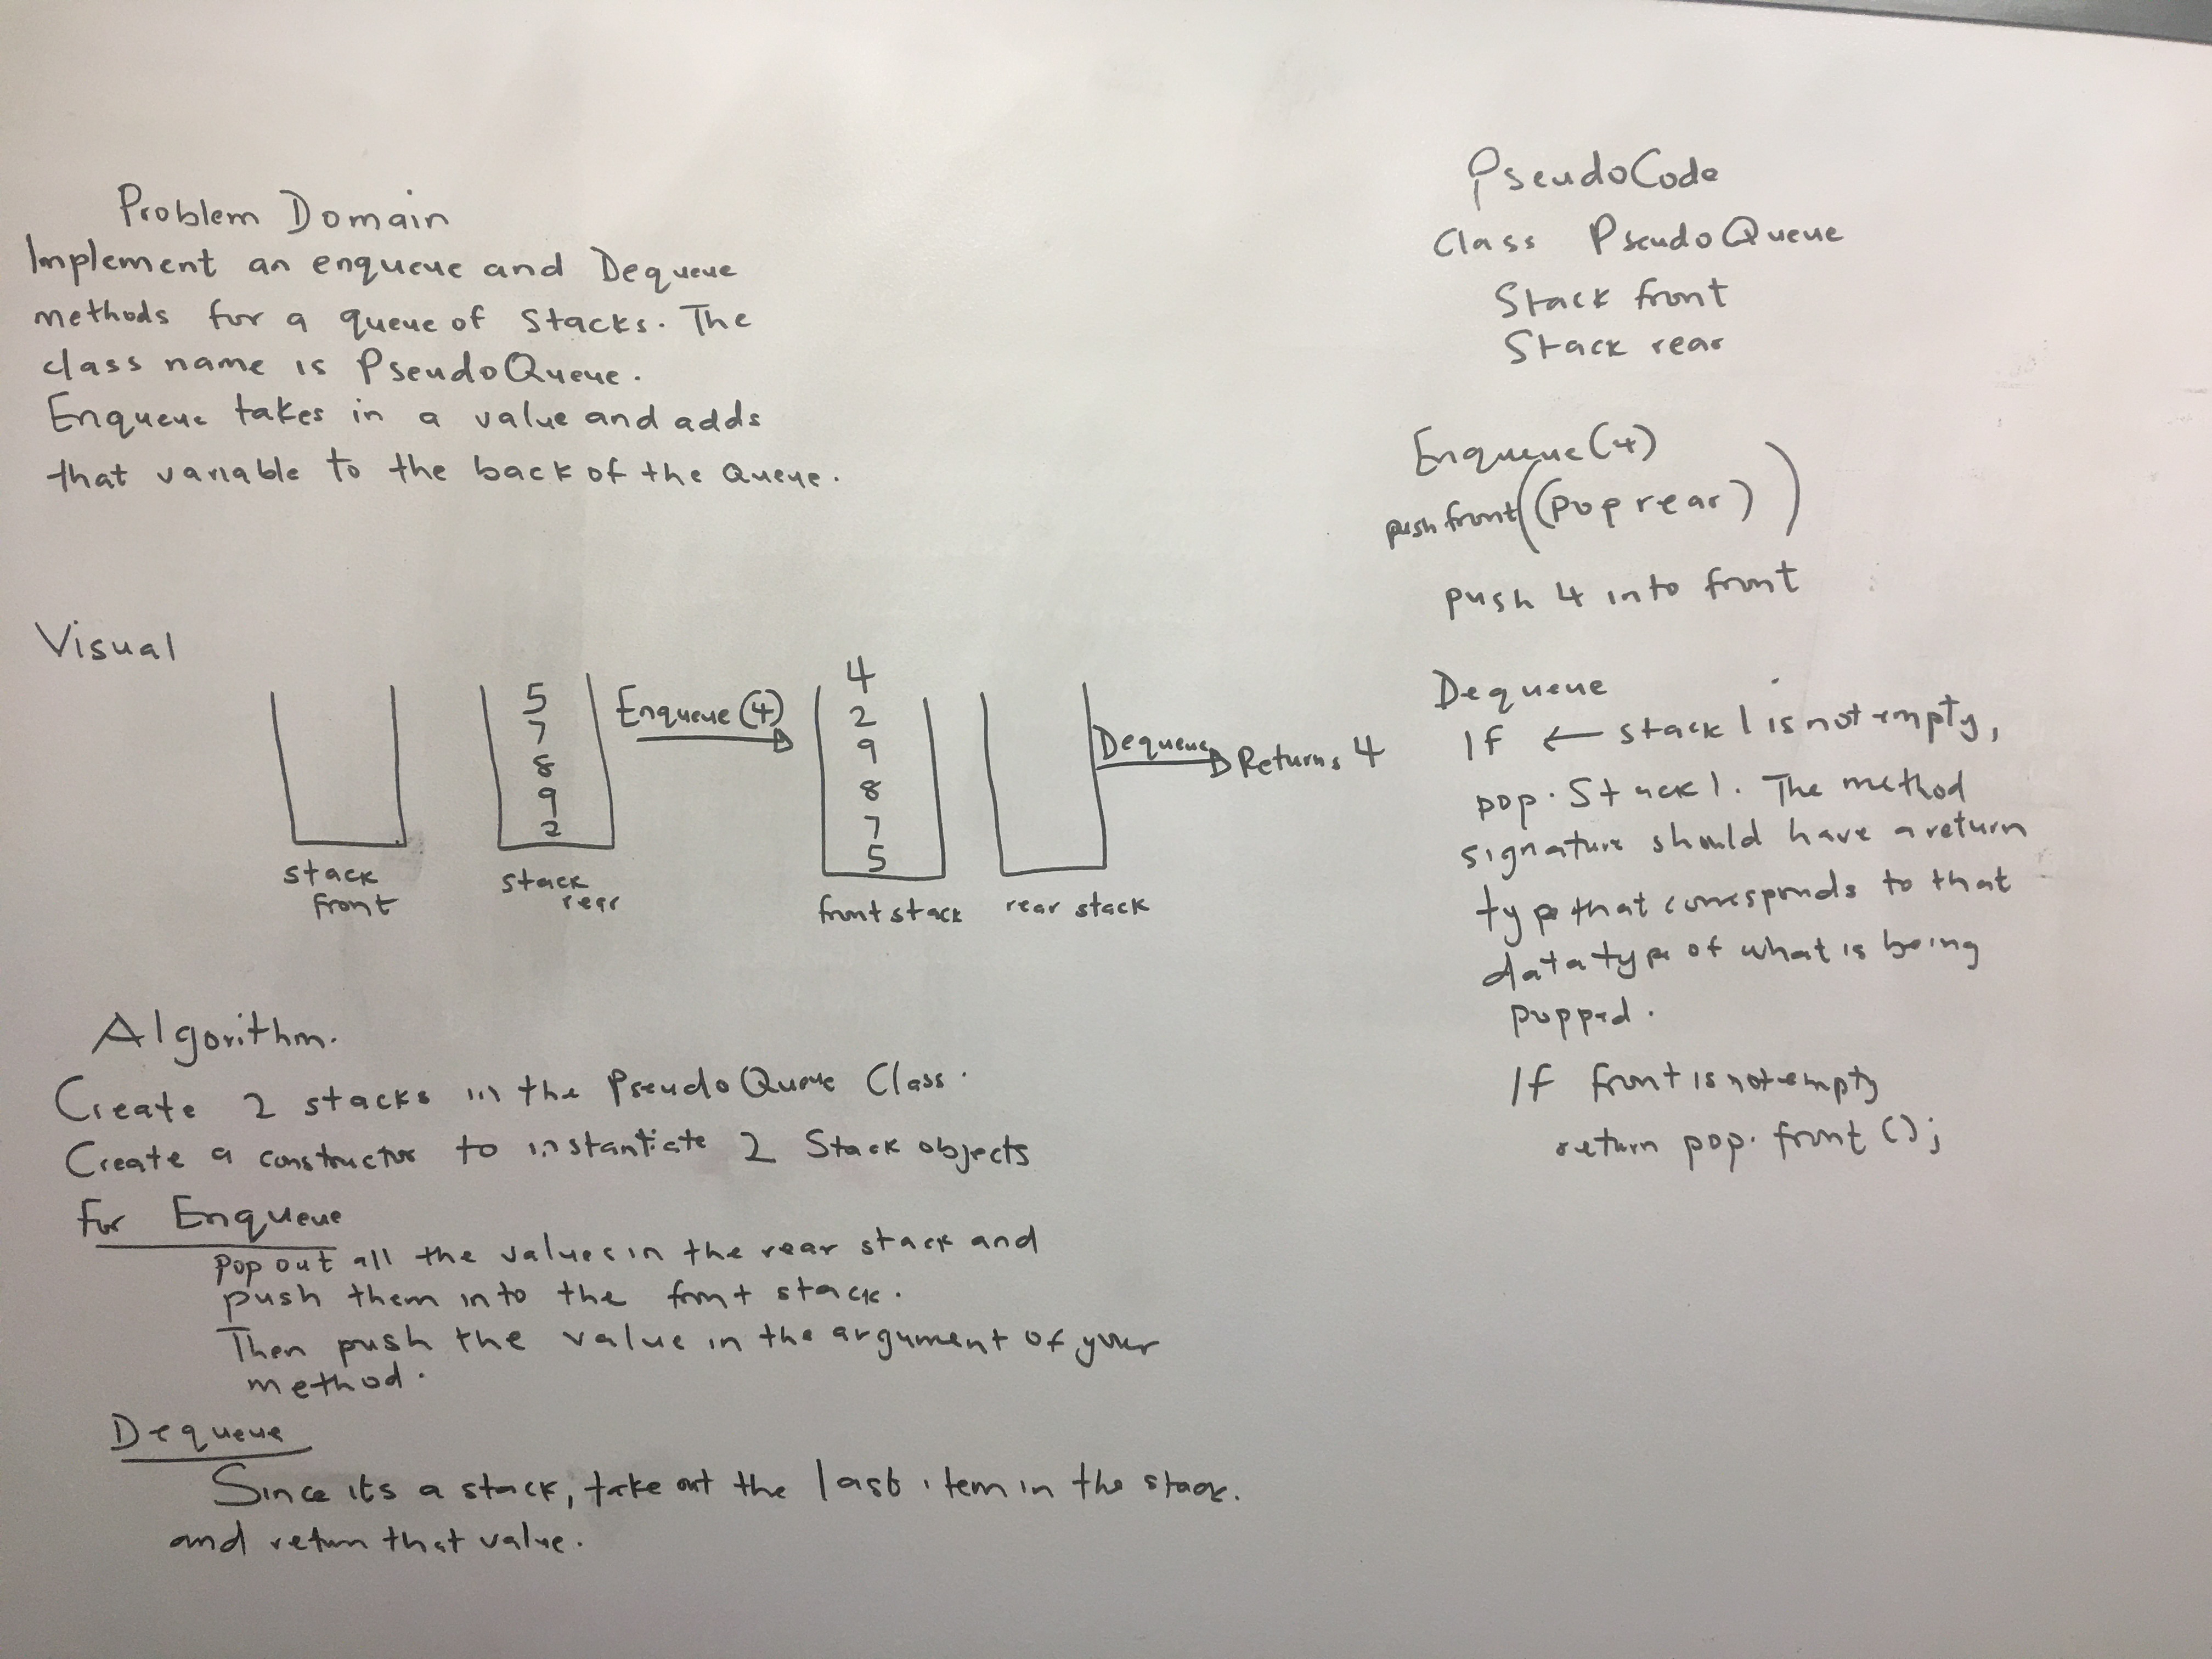 Problem Domain
Implement an enqueue and Dequeue
methods for a queue of Stacks. The
class name is PseudoQueue.
Enqueue takes in a value and adds
that variable to the back of the Queue.
Visual
5
7
8
9
2
stack
front
stack
rear
Enqueue (4)
4
2
9
8
7
5
front stack
rear stack
Dequeue
Returns 4
Algorithm.
Create 2 stacks in the PseudoQueue Class.
Create a constructor to instantiate 2 Stack objects
For Enqueue
Pop out all the values in the rear stack and
push them into the front stack.
Then push the value in the argument of your
method.
Dequeue
Since its a stack, take out the last item in the stack.
and return that value.
PseudoCode
Class PseudoQueue
Stack front
Stack rear
Enqueue (4)
push front ((Pop rear))
push 4 into front
Dequeue
If ← stack 1 is not empty,
pop. Stack 1. The method
signature should have a return
type that corresponds to that
datatype of what is being
popped.
If front is not empty
return pop. front ();